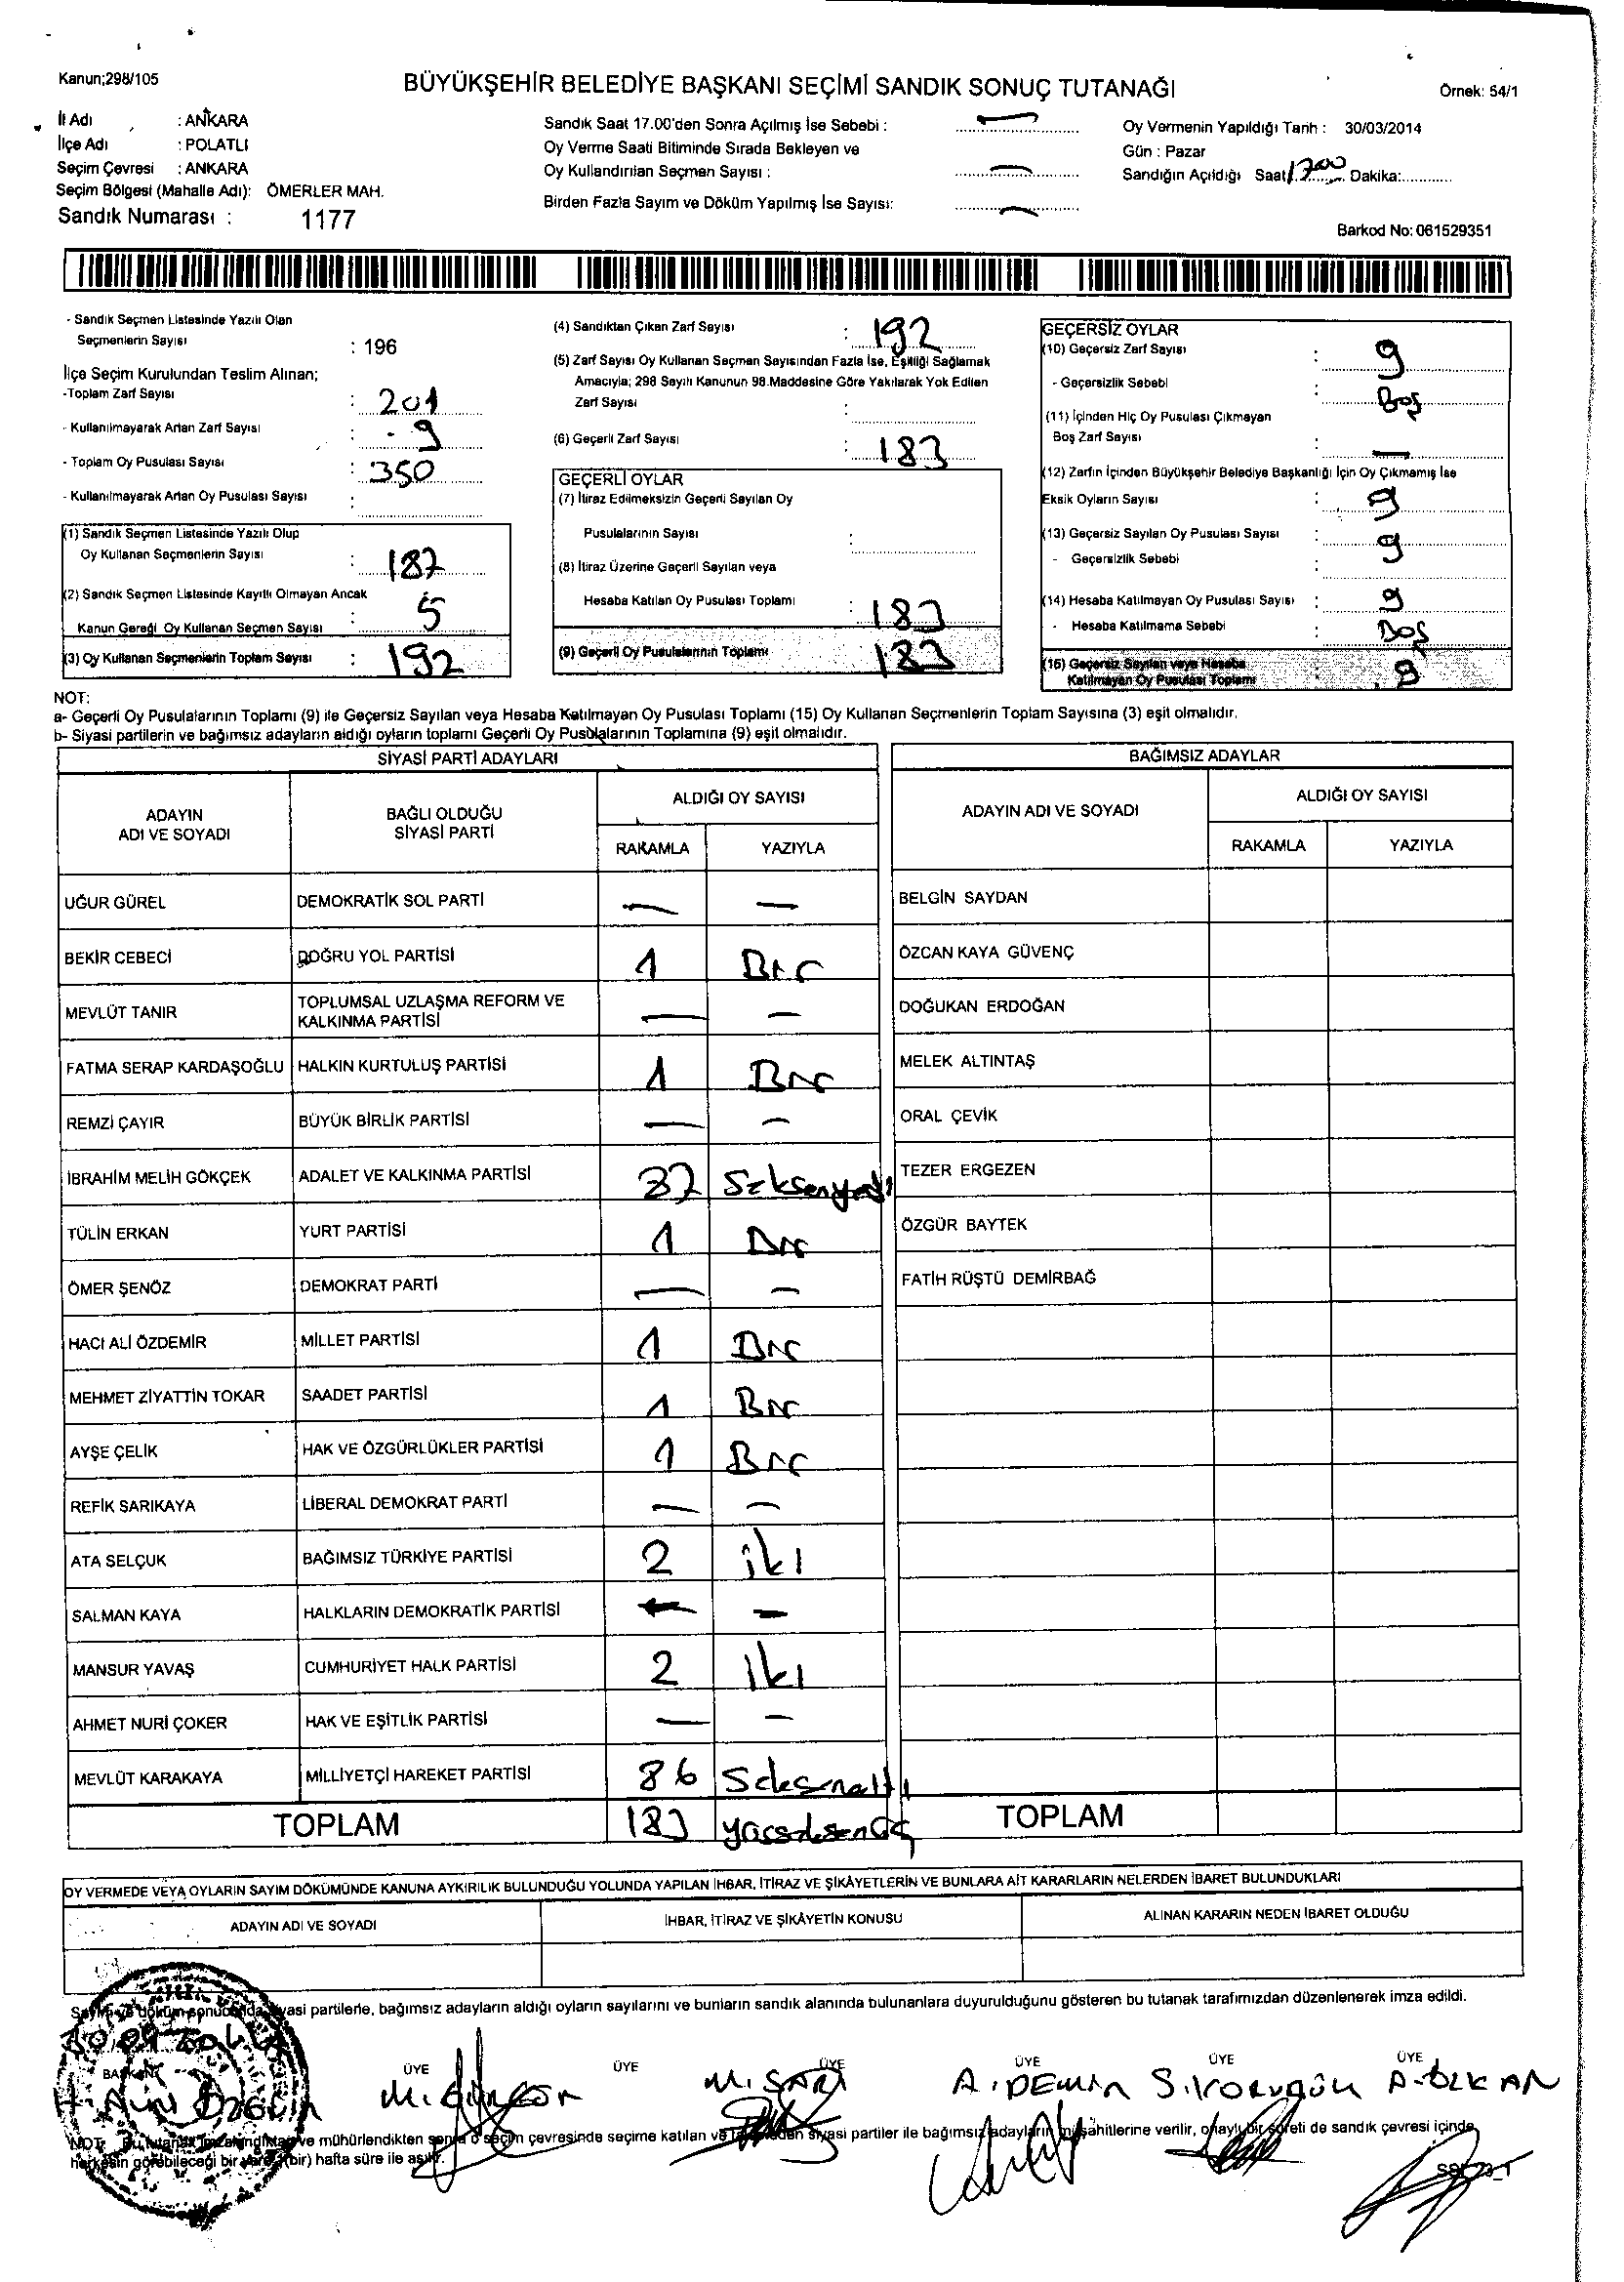 Kanun;298/105
BÜYÜKŞEHİR BELEDİYE BAŞKANI SEÇİMİ SANDIK SONUÇ TUTANAĞI
Örnek: 54/1
İl Adı : ANKARA
İlçe Adı : POLATLI
Seçim Çevresi : ANKARA
Seçim Bölgesi (Mahalle Adı): ÖMERLER MAH.
Sandık Numarası : 1177
Sandık Saat 17.00'den Sonra Açılmış İse Sebebi : —
Oy Verme Saati Bitiminde Sırada Bekleyen ve
Oy Kullandırılan Seçmen Sayısı : —
Birden Fazla Sayım ve Döküm Yapılmış İse Sayısı: —
Oy Vermenin Yapıldığı Tarih : 30/03/2014
Gün : Pazar
Sandığın Açıldığı Saat 1700 Dakika:
Barkod No: 061529351
- Sandık Seçmen Listesinde Yazılı Olan
Seçmenlerin Sayısı : 196
İlçe Seçim Kurulundan Teslim Alınan;
-Toplam Zarf Sayısı : 201
- Kullanılmayarak Artan Zarf Sayısı : - 9
- Toplam Oy Pusulası Sayısı : 350
- Kullanılmayarak Artan Oy Pusulası Sayısı :
(1) Sandık Seçmen Listesinde Yazılı Olup
Oy Kullanan Seçmenlerin Sayısı : 187
(2) Sandık Seçmen Listesinde Kayıtlı Olmayan Ancak
Kanun Gereği Oy Kullanan Seçmen Sayısı : 5
(3) Oy Kullanan Seçmenlerin Toplam Sayısı : 192
(4) Sandıktan Çıkan Zarf Sayısı : 192
(5) Zarf Sayısı Oy Kullanan Seçmen Sayısından Fazla İse, Eşitliği Sağlamak
Amacıyla; 298 Sayılı Kanunun 98.Maddesine Göre Yakılarak Yok Edilen
Zarf Sayısı :
(6) Geçerli Zarf Sayısı : 183
GEÇERLİ OYLAR
(7) İtiraz Edilmeksizin Geçerli Sayılan Oy
Pusulalarının Sayısı :
(8) İtiraz Üzerine Geçerli Sayılan veya
Hesaba Katılan Oy Pusulası Toplamı : 183
(9) Geçerli Oy Pusulalarının Toplamı 183
GEÇERSİZ OYLAR
(10) Geçersiz Zarf Sayısı : 9
- Geçersizlik Sebebi : Boş
(11) İçinden Hiç Oy Pusulası Çıkmayan
Boş Zarf Sayısı : —
(12) Zarfın İçinden Büyükşehir Belediye Başkanlığı İçin Oy Çıkmamış İse
Eksik Oyların Sayısı : 9
(13) Geçersiz Sayılan Oy Pusulası Sayısı : 9
- Geçersizlik Sebebi :
(14) Hesaba Katılmayan Oy Pusulası Sayısı : 9
- Hesaba Katılmama Sebebi : Boş
(15) Geçersiz Sayılan veya Hesaba
Katılmayan Oy Pusulası Toplamı 9
NOT:
a- Geçerli Oy Pusulalarının Toplamı (9) ile Geçersiz Sayılan veya Hesaba Katılmayan Oy Pusulası Toplamı (15) Oy Kullanan Seçmenlerin Toplam Sayısına (3) eşit olmalıdır.
b- Siyasi partilerin ve bağımsız adayların aldığı oyların toplamı Geçerli Oy Pusulalarının Toplamına (9) eşit olmalıdır.
SİYASİ PARTİ ADAYLARI
ADAYIN ADI VE SOYADI BAĞLI OLDUĞU SİYASİ PARTİ ALDIĞI OY SAYISI
RAKAMLA YAZIYLA
UĞUR GÜREL DEMOKRATİK SOL PARTİ — —
BEKİR CEBECİ DOĞRU YOL PARTİSİ 1 Bir
MEVLÜT TANIR TOPLUMSAL UZLAŞMA REFORM VE KALKINMA PARTİSİ — —
FATMA SERAP KARDAŞOĞLU HALKIN KURTULUŞ PARTİSİ 1 Bir
REMZİ ÇAYIR BÜYÜK BİRLİK PARTİSİ — —
İBRAHİM MELİH GÖKÇEK ADALET VE KALKINMA PARTİSİ 87 Seksenyedi
TÜLİN ERKAN YURT PARTİSİ 1 Bir
ÖMER ŞENÖZ DEMOKRAT PARTİ — —
HACI ALİ ÖZDEMİR MİLLET PARTİSİ 1 Bir
MEHMET ZİYATTİN TOKAR SAADET PARTİSİ 1 Bir
AYŞE ÇELİK HAK VE ÖZGÜRLÜKLER PARTİSİ 1 Bir
REFİK SARIKAYA LİBERAL DEMOKRAT PARTİ — —
ATA SELÇUK BAĞIMSIZ TÜRKİYE PARTİSİ 2 iki
SALMAN KAYA HALKLARIN DEMOKRATİK PARTİSİ — —
MANSUR YAVAŞ CUMHURİYET HALK PARTİSİ 2 iki
AHMET NURİ ÇOKER HAK VE EŞİTLİK PARTİSİ — —
MEVLÜT KARAKAYA MİLLİYETÇİ HAREKET PARTİSİ 86 Seksenaltı
TOPLAM 183 yüzseksenüç
BAĞIMSIZ ADAYLAR
ADAYIN ADI VE SOYADI ALDIĞI OY SAYISI
RAKAMLA YAZIYLA
BELGİN SAYDAN
ÖZCAN KAYA GÜVENÇ
DOĞUKAN ERDOĞAN
MELEK ALTINTAŞ
ORAL ÇEVİK
TEZER ERGEZEN
ÖZGÜR BAYTEK
FATİH RÜŞTÜ DEMİRBAĞ
TOPLAM
OY VERMEDE VEYA OYLARIN SAYIM DÖKÜMÜNDE KANUNA AYKIRILIK BULUNDUĞU YOLUNDA YAPILAN İHBAR, İTİRAZ VE ŞİKÂYETLERİN VE BUNLARA AİT KARARLARIN NELERDEN İBARET BULUNDUKLARI
ADAYIN ADI VE SOYADI İHBAR, İTİRAZ VE ŞİKÂYETİN KONUSU ALINAN KARARIN NEDEN İBARET OLDUĞU
Sayım ve döküm sonucunda siyasi partilerle, bağımsız adayların aldığı oyların sayılarını ve bunların sandık alanında bulunanlara duyurulduğunu gösteren bu tutanak tarafımızdan düzenlenerek imza edildi.
BAŞKAN ÜYE ÜYE ÜYE ÜYE ÜYE ÜYE
M. SARI A. DEMİR A. ÖZKAN
NOT: Bu tutanak imzalandıktan ve mühürlendikten sonra o seçim çevresinde seçime katılan ve siyasi partiler ile bağımsız adayların müşahitlerine verilir, onaylı bir sureti de sandık çevresi içinde
herkesin görebileceği bir yere (bir) hafta süre ile asılır.